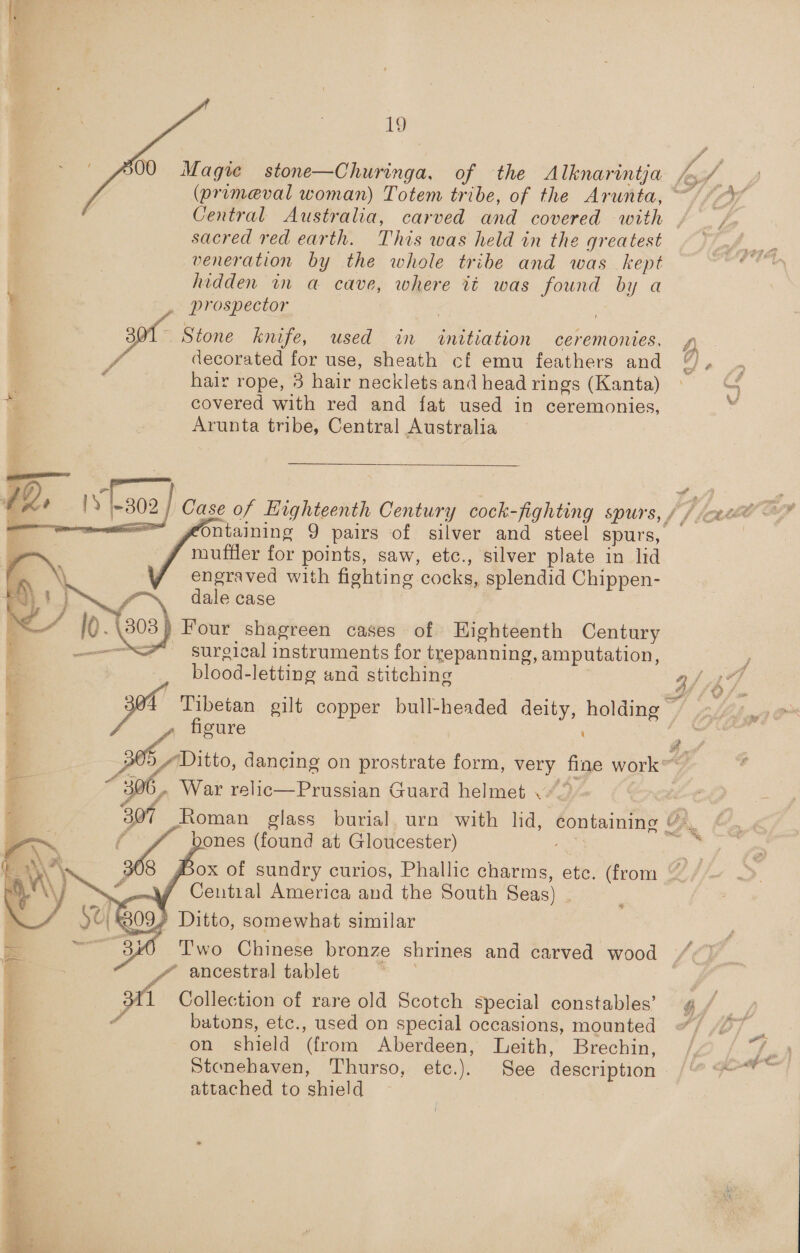 19
300 Magic stone—Churinga, of the Alknarintja
(primæval woman) Totem tribe, of the Arunta,
Central Australia, carved and covered with
sacred red earth. This was held in the greatest
veneration by the whole tribe and was kept
hidden in a cave, where it was found by a
prospector
301 Stone knife, used in initiation ceremonies,
decorated for use, sheath of emu feathers and
hair rope, 3 hair necklets and head rings (Kanta)
covered with red and fat used in ceremonies,
Arunta tribe, Central Australia
302 Case of Eighteenth Century cock-fighting spurs,
containing 9 pairs of silver and steel spurs,
muffler for points, saw, etc., silver plate in lid
engraved with fighting cocks, splendid Chippen-
dale case
10. 303 Four shagreen cases of Eighteenth Century
surgical instruments for trepanning, amputation,
blood-letting and stitching
304 Tibetan gilt copper bull-headed deity, holding
figure
305 Ditto, dancing on prostrate form, very fine work
306 War relic—Prussian Guard helmet
307 Roman glass burial urn with lid, containing
bones (found at Gloucester)
308 Box of sundry curios, Phallic charms, etc. (from
Central America and the South Seas)
309 Ditto, somewhat similar
310 Two Chinese bronze shrines and carved wood
ancestral tablet
311 Collection of rare old Scotch special constables'
batons, etc., used on special occasions, mounted
on shield (from Aberdeen, Leith, Brechin,
Stonehaven, Thurso, etc.). See description
attached to shield